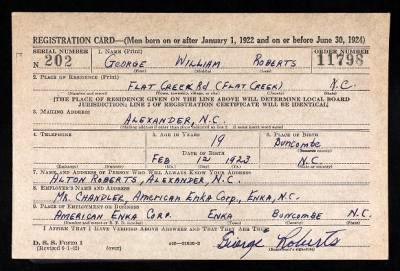 REGISTRATION CARD—(Men born on or after January 1, 1922 and on or before June 30, 1924)
SERIAL NUMBER 1. NAME (Print) ORDER NUMBER
N 202 GEORGE WILLIAM ROBERTS 11798
(First) (Middle) (Last)
2. PLACE OF RESIDENCE (Print)
FLAT CREEK RD (FLAT CREEK) N.C.
(Number and street) (Town, township, village, or city) (County) (State)
[THE PLACE OF RESIDENCE GIVEN ON THE LINE ABOVE WILL DETERMINE LOCAL BOARD
JURISDICTION; LINE 2 OF REGISTRATION CERTIFICATE WILL BE IDENTICAL]
3. MAILING ADDRESS
ALEXANDER, N.C.
[Mailing address if other than place indicated on line 2. If same insert word same]
4. TELEPHONE 5. AGE IN YEARS 6. PLACE OF BIRTH
19 BUNCOMBE
DATE OF BIRTH (Town or county)
FEB 12 1923 N.C.
(Exchange) (Number) (Mo.) (Day) (Yr.) (State or country)
7. NAME AND ADDRESS OF PERSON WHO WILL ALWAYS KNOW YOUR ADDRESS
ALTON ROBERTS, ALEXANDER, N.C.
8. EMPLOYER'S NAME AND ADDRESS
MR. CHANDLER, AMERICAN ENKA CORP., ENKA, N.C.
9. PLACE OF EMPLOYMENT OR BUSINESS
AMERICAN ENKA CORP. ENKA BUNCOMBE N.C.
(Number and street or R. F. D. number) (Town) (County) (State)
I AFFIRM THAT I HAVE VERIFIED ABOVE ANSWERS AND THAT THEY ARE TRUE.
D. S. S. Form 1
George Roberts
(Registrant's signature)